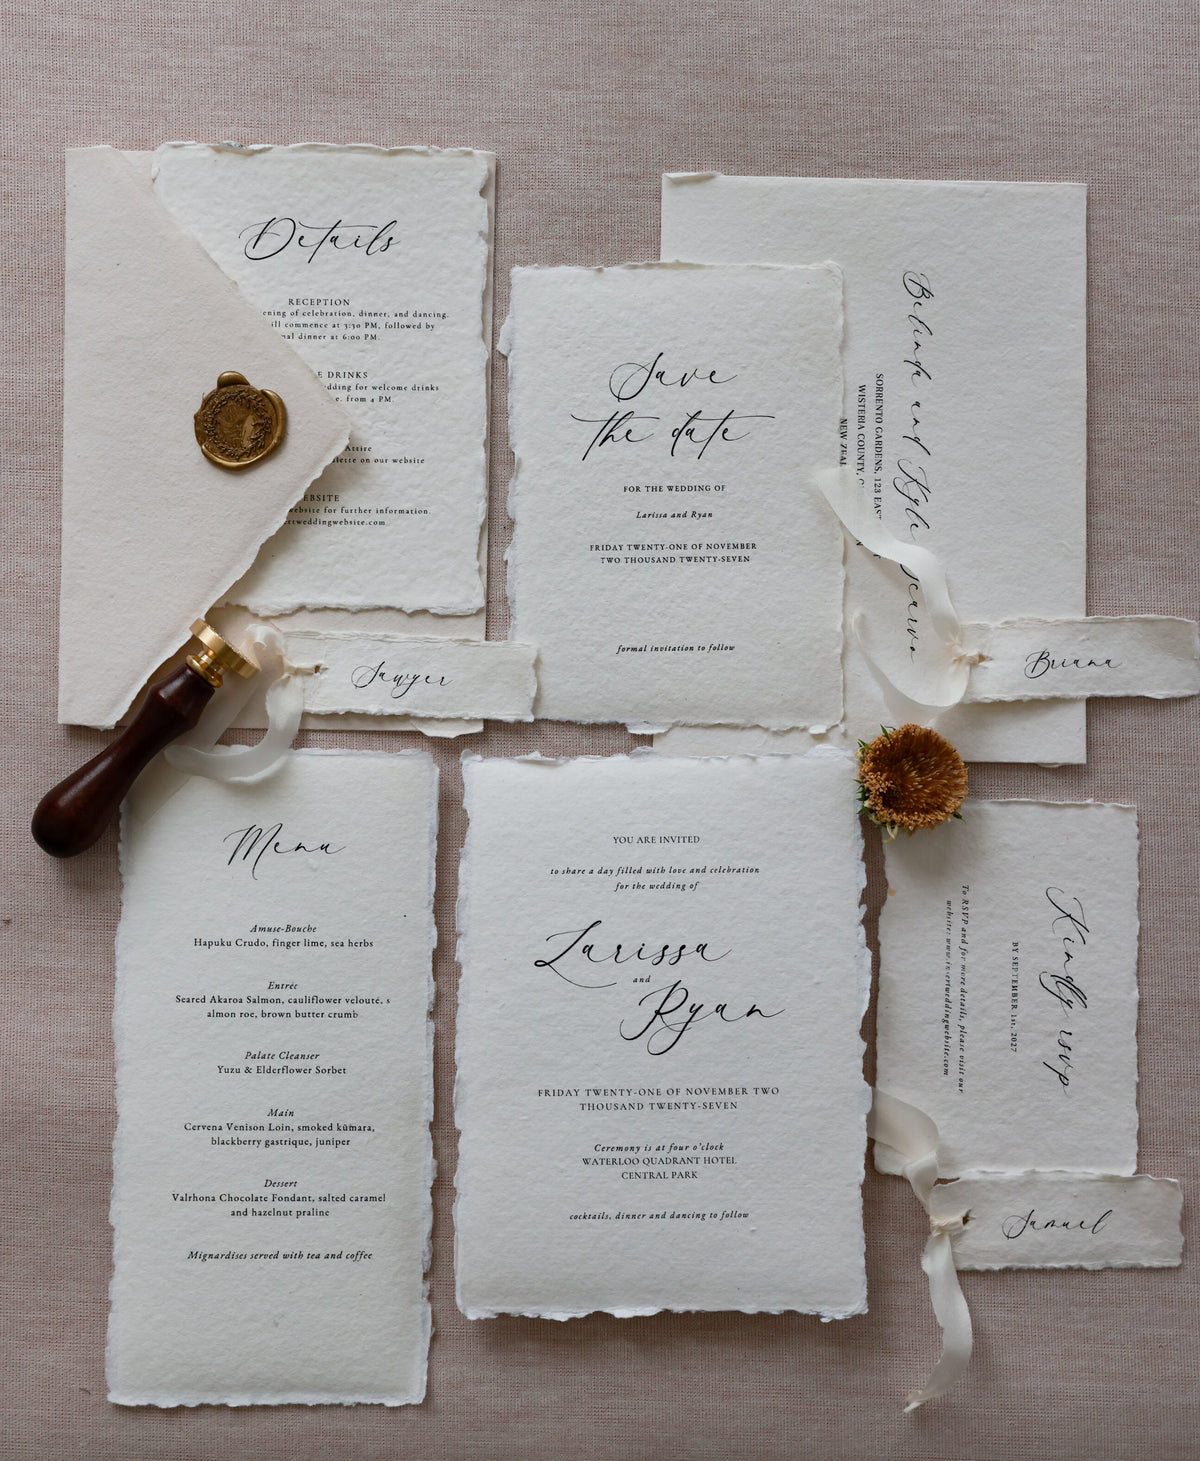 Details
RECEPTION
of celebration, dinner, and dancing.
commence at 3:30 PM, followed by
dinner at 6:00 PM.
DRINKS
for welcome drinks
from 4 PM.
Attire
on our website
for further information.
Sawyer
Save
the date
FOR THE WEDDING OF
Larissa and Ryan
FRIDAY TWENTY-ONE OF NOVEMBER
TWO THOUSAND TWENTY-SEVEN
formal invitation to follow
Belinda and Kyle
SORRENTO GARDENS, 123
WISTERIA COUNTY,
NEW
Briana
Menu
Amuse-Bouche
Hapuku Crudo, finger lime, sea herbs
Entrée
Seared Akaroa Salmon, cauliflower velouté, s
almon roe, brown butter crumb
Palate Cleanser
Yuzu & Elderflower Sorbet
Main
Cervena Venison Loin, smoked kūmara,
blackberry gastrique, juniper
Dessert
Valrhona Chocolate Fondant, salted caramel
and hazelnut praline
Mignardises served with tea and coffee
YOU ARE INVITED
to share a day filled with love and celebration
for the wedding of
Larissa
and
Ryan
FRIDAY TWENTY-ONE OF NOVEMBER TWO
THOUSAND TWENTY-SEVEN
Ceremony is at four o'clock
WATERLOO QUADRANT HOTEL
CENTRAL PARK
cocktails, dinner and dancing to follow
Kindly rsvp
BY SEPTEMBER 1st, 2027
To RSVP and for more details, please visit our
website: www.insertweddingwebsite.com
Samuel